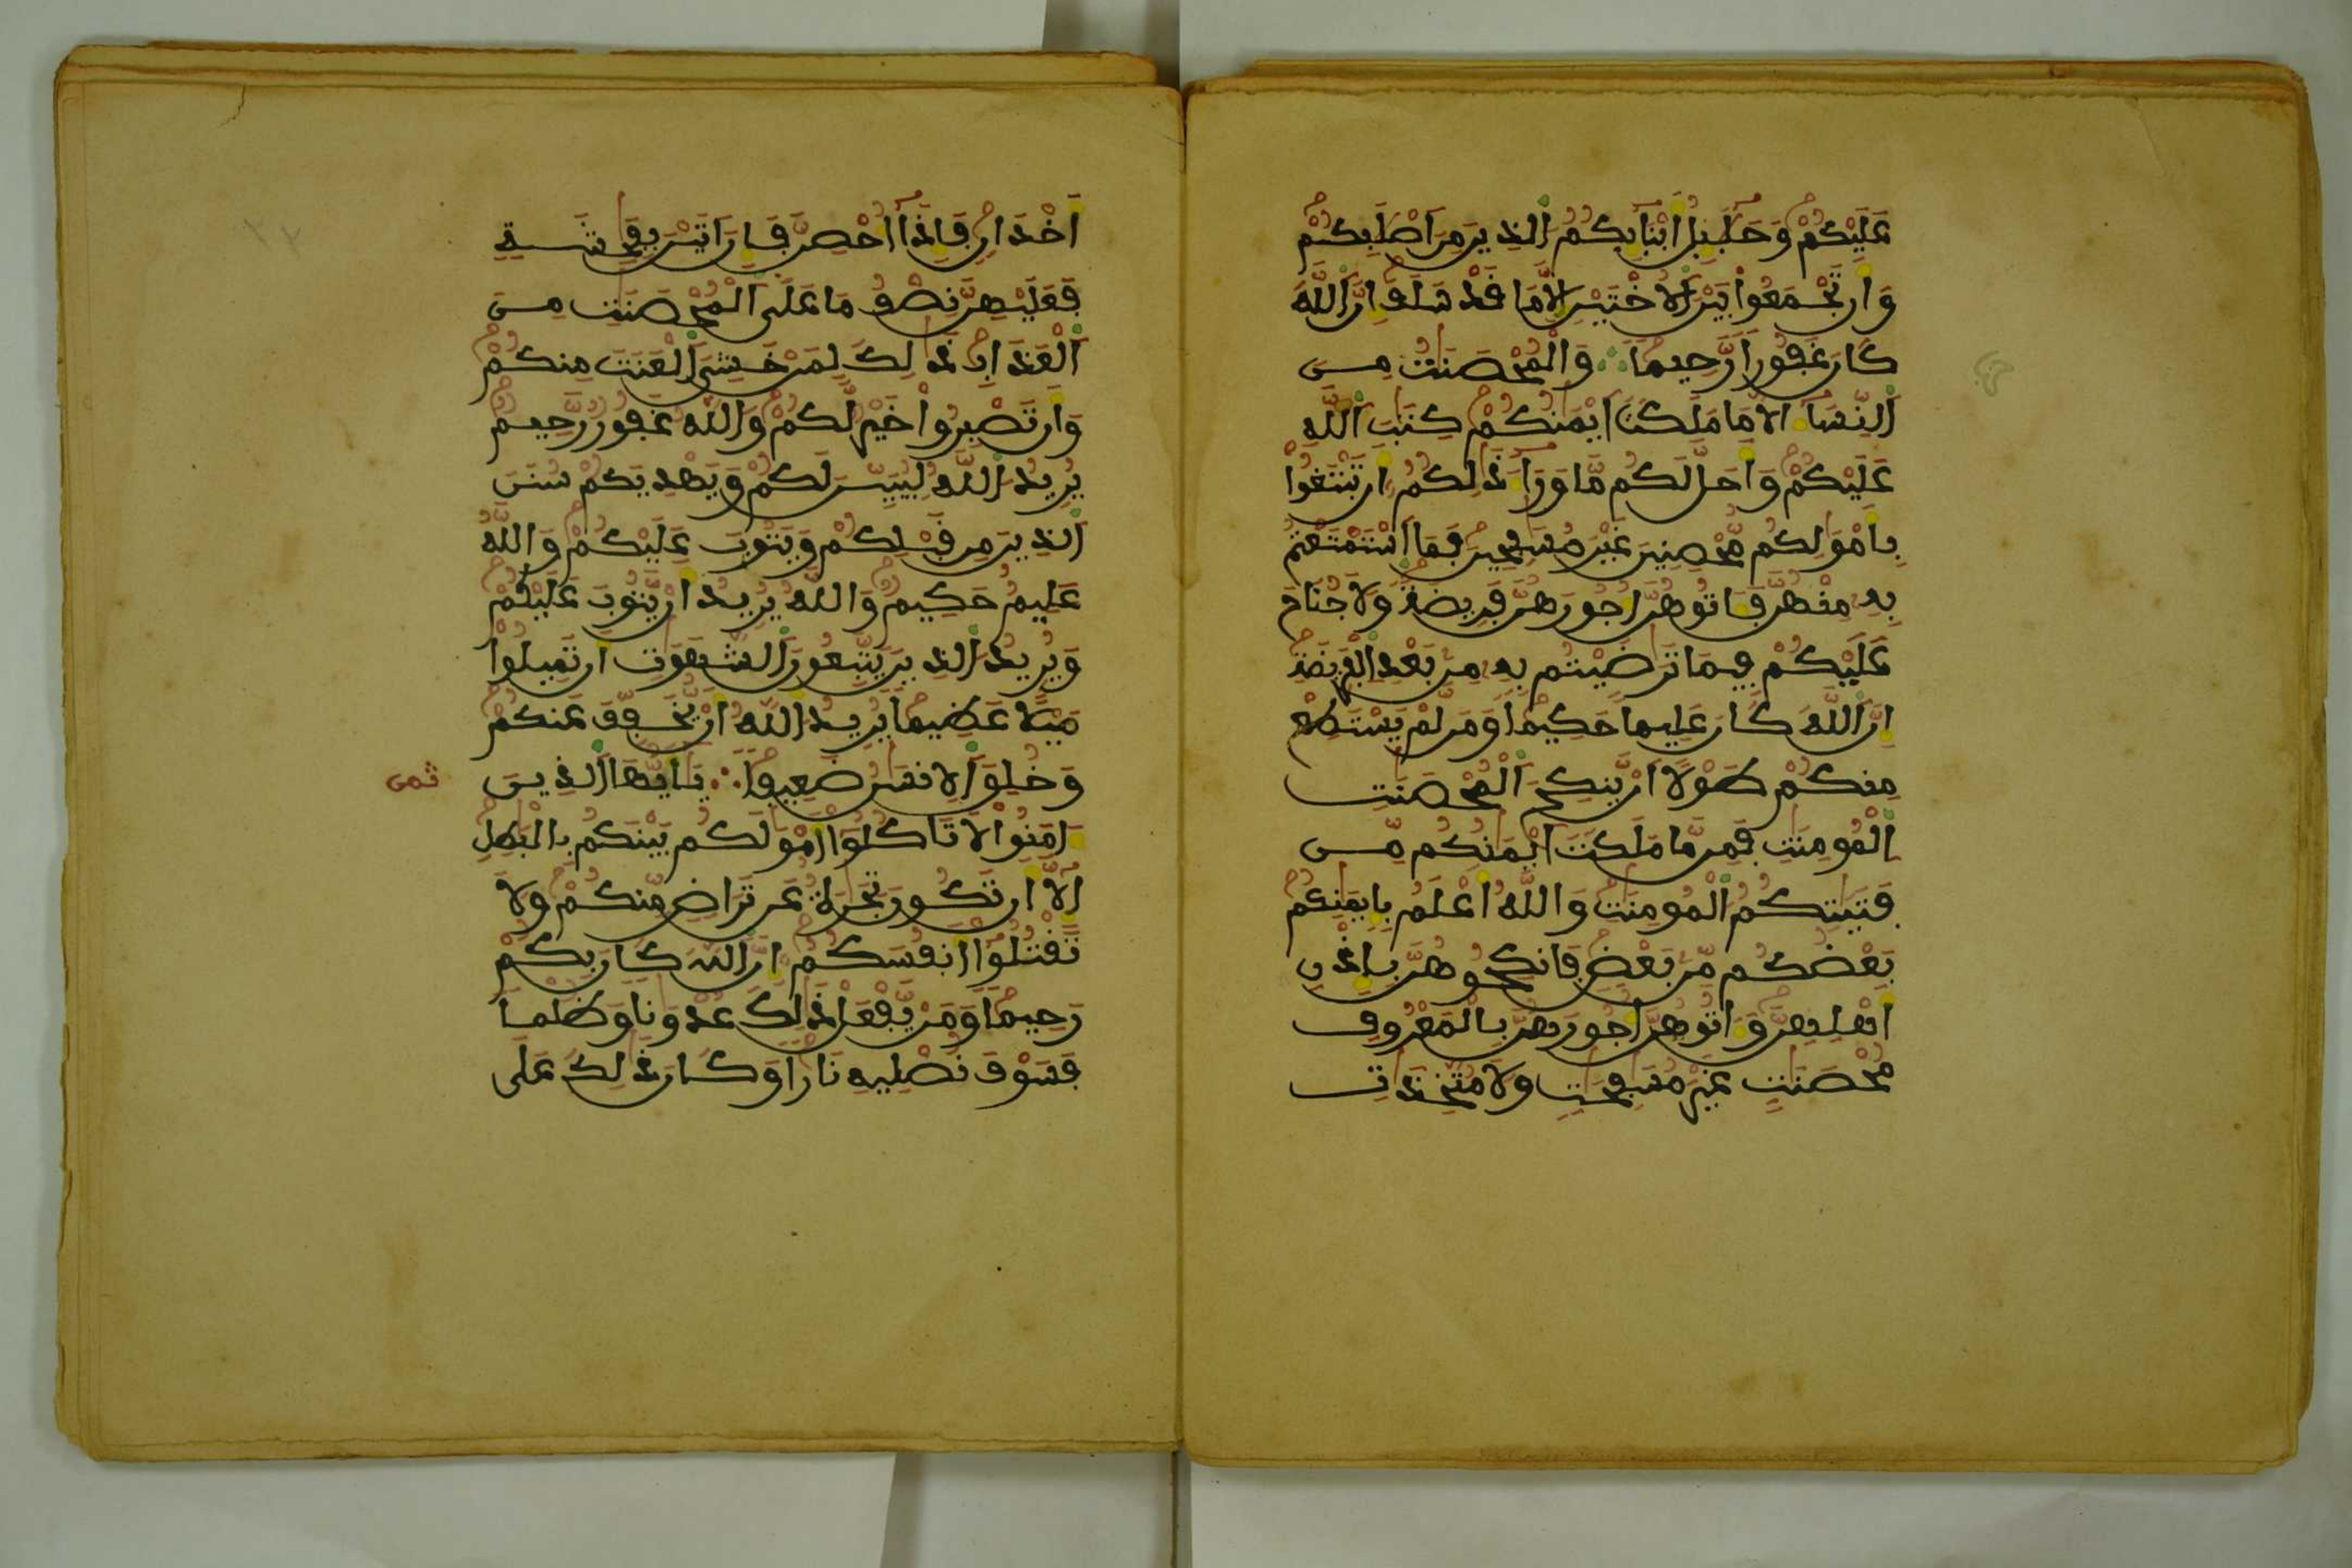 عَلَيْكُمْ وَحَلَٰٓئِلُ أَبْنَآئِكُمُ الذِينَ مِنَ اَصْلَٰبِكُمْ
وَأَن تَجْمَعُوا بَيْنَ اَلُاخْتَيْنِ إِلَّا مَا قَدْ سَلَفَ إِنَّ اَللَّهَ
كَانَ غَفُورًا رَّحِيمًا ∴ وَالْمُحْصَنَٰتُ مِنَ
اَلنِّسَآءِ الَّا مَا مَلَكَتَ اَيْمَٰنُكُمْ كِتَٰبَ اَللَّهِ
عَلَيْكُمْ وَأَحَلَّ لَكُم مَّا وَرَآءَ ذَٰلِكُمُ أَن تَبْتَغُوا
بِأَمْوَٰلِكُم مُّحْصِنِينَ غَيْرَ مُسَٰفِحِينَ فَمَا اَسْتَمْتَعْتُم
بِهِ مِنْهُنَّ فَـَٔاتُوهُنَّ أُجُورَهُنَّ فَرِيضَةً وَلَا جُنَاحَ
عَلَيْكُمْ فِيمَا تَرَٰضَيْتُم بِهِ مِنۢ بَعْدِ اِلْفَرِيضَةِ
إِنَّ اَللَّهَ كَانَ عَلِيمًا حَكِيمًا وَمَن لَّمْ يَسْتَطِعْ
مِنكُمْ طَوْلًا اَنْ يَّنكِحَ اَلْمُحْصَنَٰتِ
اِلْمُومِنَٰتِ فَمِن مَّا مَلَكَتَ اَيْمَٰنُكُم مِّن
فَتَيَٰتِكُمُ اُلْمُومِنَٰتِ وَاللَّهُ أَعْلَمُ بِإِيمَٰنِكُم
بَعْضُكُم مِّنۢ بَعْضٍ فَانكِحُوهُنَّ بِإِذْنِ
أَهْلِهِنَّ وَءَاتُوهُنَّ أُجُورَهُنَّ بِالْمَعْرُوفِ
مُحْصَنَٰتٍ غَيْرَ مُسَٰفِحَٰتٍ وَلَا مُتَّخِذَٰتِ
أَخْدَانٍ فَإِذَا أُحْصِنَّ فَإِنَ اَتَيْنَ بِفَٰحِشَةٍ
فَعَلَيْهِنَّ نِصْفُ مَا عَلَى اَلْمُحْصَنَٰتِ مِنَ
اَلْعَذَابِ ذَٰلِكَ لِمَنْ خَشِيَ اَلْعَنَتَ مِنكُمْ
وَأَن تَصْبِرُوا خَيْرٌ لَّكُمْ وَاللَّهُ غَفُورٌ رَّحِيمٌ
يُرِيدُ اُللَّهُ لِيُبَيِّنَ لَكُمْ وَيَهْدِيَكُمْ سُنَنَ
اَلذِينَ مِن قَبْلِكُمْ وَيَتُوبَ عَلَيْكُمْ وَاللَّهُ
عَلِيمٌ حَكِيمٌ وَاللَّهُ يُرِيدُ أَنْ يَّتُوبَ عَلَيْكُمْ
وَيُرِيدُ اُلذِينَ يَتَّبِعُونَ اَلشَّهَوَٰتِ أَن تَمِيلُوا
مَيْلًا عَظِيمًا يُرِيدُ اُللَّهُ أَنْ يُّخَفِّفَ عَنكُمْ
وَخُلِقَ اَلِانسَٰنُ ضَعِيفًا ∴ يَٰٓأَيُّهَا اَلذِينَ
ثمن
ءَامَنُوا لَا تَاكُلُوا أَمْوَٰلَكُم بَيْنَكُم بِالْبَٰطِلِ
إِلَّا أَن تَكُونَ تِجَٰرَةٌ عَن تَرَاضٍ مِّنكُمْ وَلَا
تَقْتُلُوا أَنفُسَكُمُ إِنَّ اَللَّهَ كَانَ بِكُمْ
رَحِيمًا وَمَنْ يَّفْعَلْ ذَٰلِكَ عُدْوَٰنًا وَظُلْمًا
فَسَوْفَ نُصْلِيهِ نَارًا وَكَانَ ذَٰلِكَ عَلَى